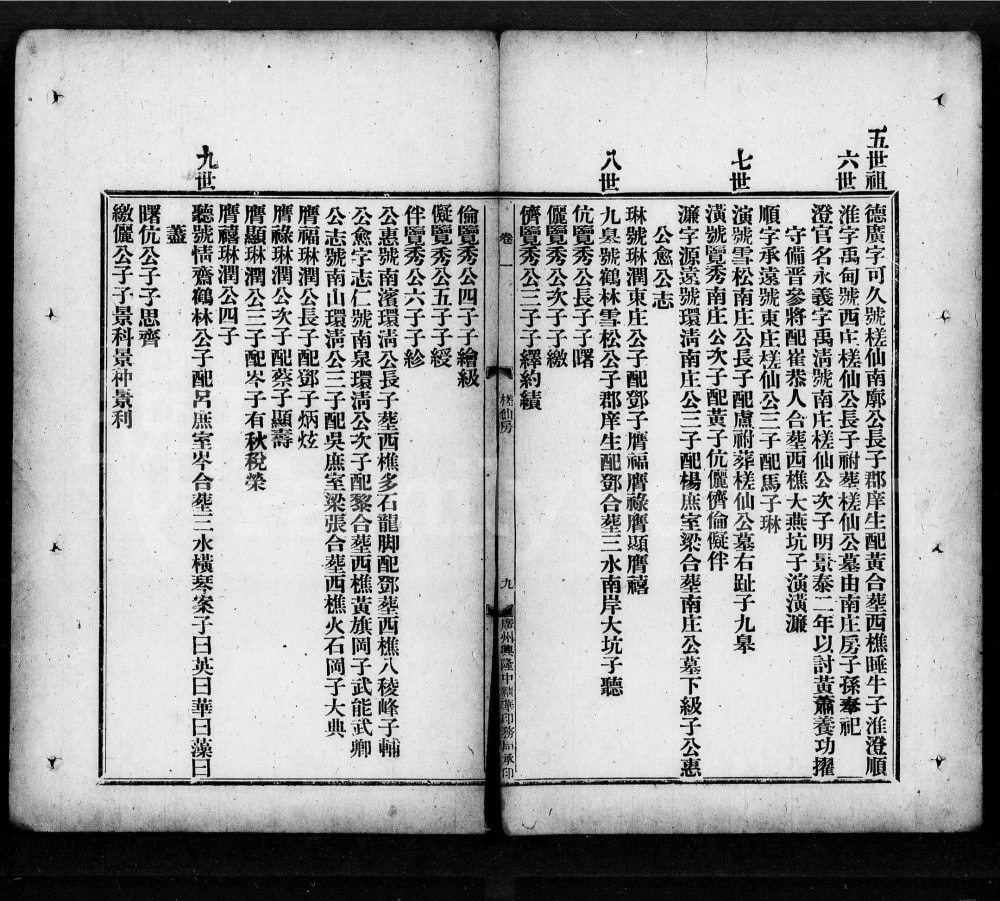 五世祖
德廣字可久號槎仙南廓公長子郡庠生配黃合塟西樵睡牛子淮澄順
六世
淮字禹甸號西庄槎仙公長子祔塟槎仙公墓由南庄房子孫奉祀
澄官名永義字禹淸號南庄槎仙公次子明景泰二年以討黃蕭養功擢
守備晋參將配崔恭人合塟西樵大燕坑子演潢濂
順字承遠號東庄槎仙公三子配馬子琳
七世
演號雪松南庄公長子配盧祔葬槎仙公墓右趾子九皋
潢號覽秀南庄公次子配黃子伉儷儕倫儗伴
濂字源遠號環淸南庄公三子配楊庶室梁合塟南庄公墓下級子公惠
公愈公志
琳號琳潤東庄公子配鄧子膺福膺祿膺顯膺禧
八世
九皋號鶴林雪松公子郡庠生配鄧合塟三水南岸大坑子聽
伉覽秀公長子子曙
儷覽秀公次子子繳
儕覽秀公三子子繹約績
卷一
槎仙房
九
廣州興隆中精華印務局承印
倫覽秀公四子子繪級
儗覽秀公五子子綬
伴覽秀公六子子紾
公惠號南濱環淸公長子塟西樵多石龍脚配鄧塟西樵八稜峰子輔
公愈字志仁號南泉環淸公次子配黎合塟西樵黃旗岡子武能武卿
公志號南山環淸公三子配吳庶室梁張合塟西樵火石岡子大典
膺福琳潤公長子配鄧子炳炫
膺祿琳潤公次子配蔡子顯壽
膺顯琳潤公三子配岑子有秋稅榮
膺禧琳潤公四子
九世
聽號惰齋鶴林公子配呂庶室岑合塟三水橫琴案子曰英曰華曰藻曰
藎
曙伉公子子思齊
繳儷公子子景科景神景利